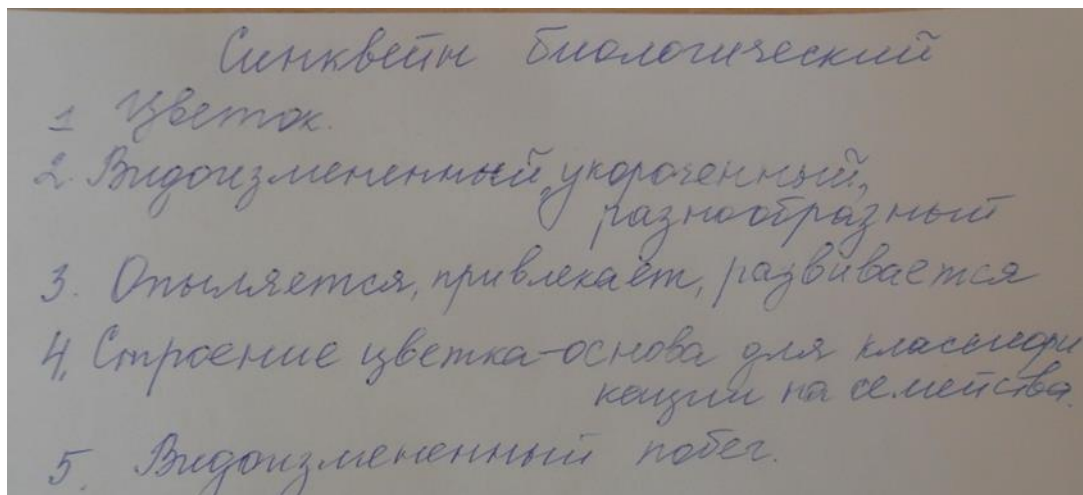 Синквейн биологический
1 Цветок.
2. Видоизмененный, укороченный,
разнообразный
3. Опыляется, привлекает, развивается
4. Строение цветка-основа для классифи
кации на семейства.
5. Видоизмененный побег.